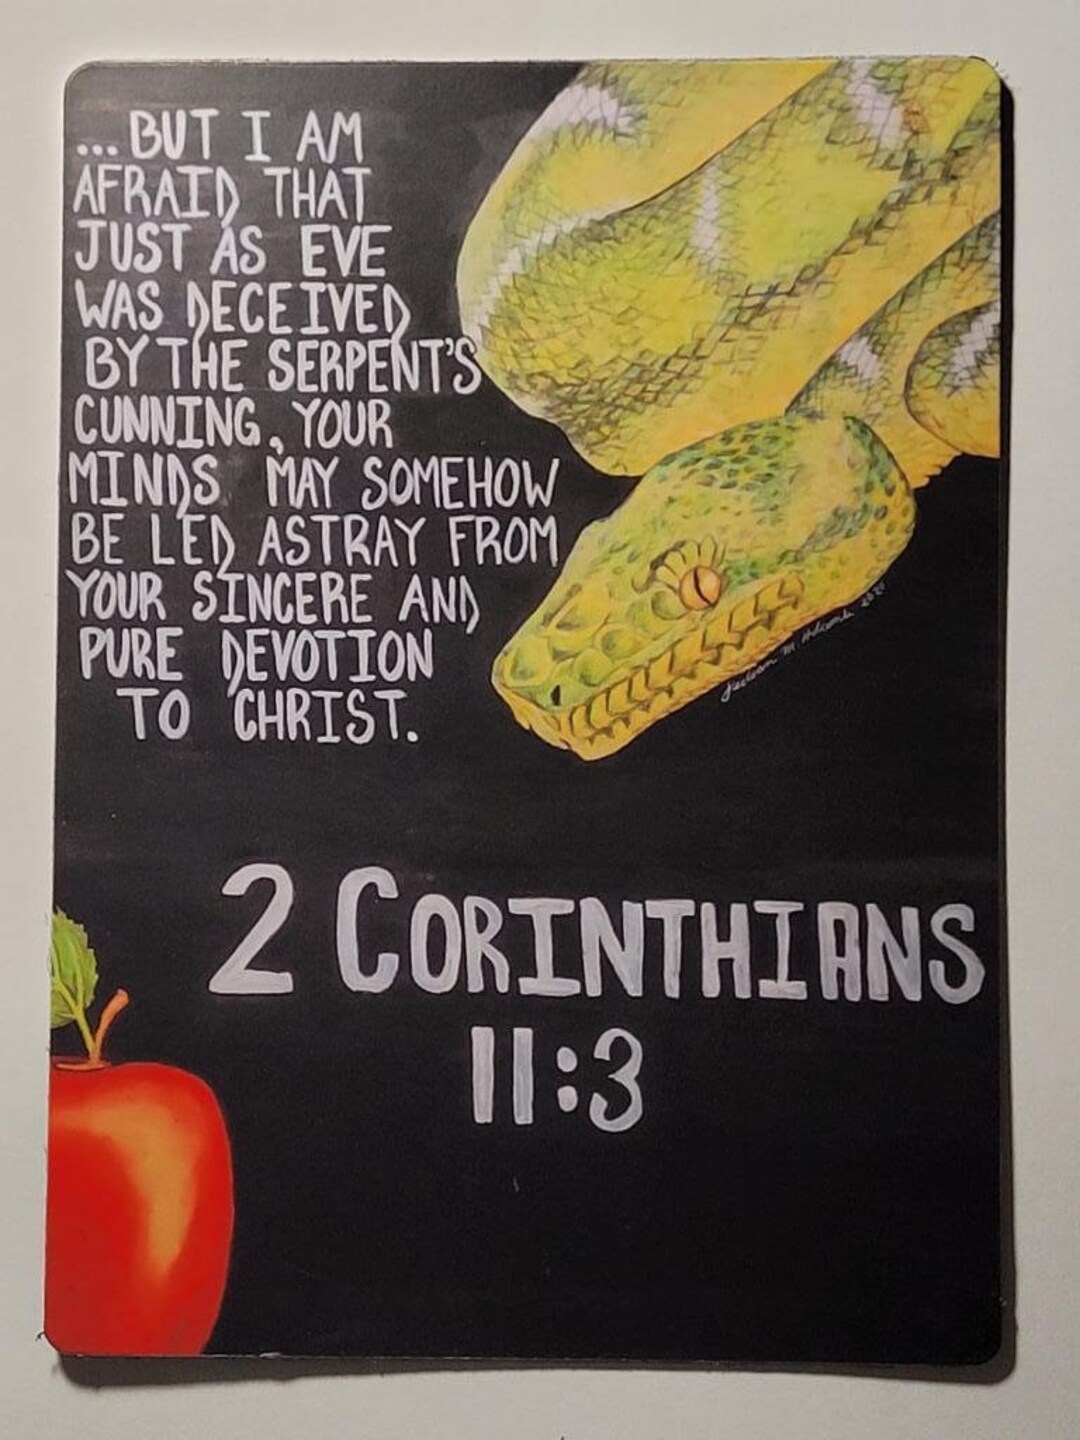 ...BUT I AM
AFRAID THAT
JUST AS EVE
WAS DECEIVED
BY THE SERPENT'S
CUNNING, YOUR
MINDS MAY SOMEHOW
BE LED ASTRAY FROM
YOUR SINCERE AND
PURE DEVOTION
TO CHRIST.
M. Holcomb
2 CORINTHIANS
11:3